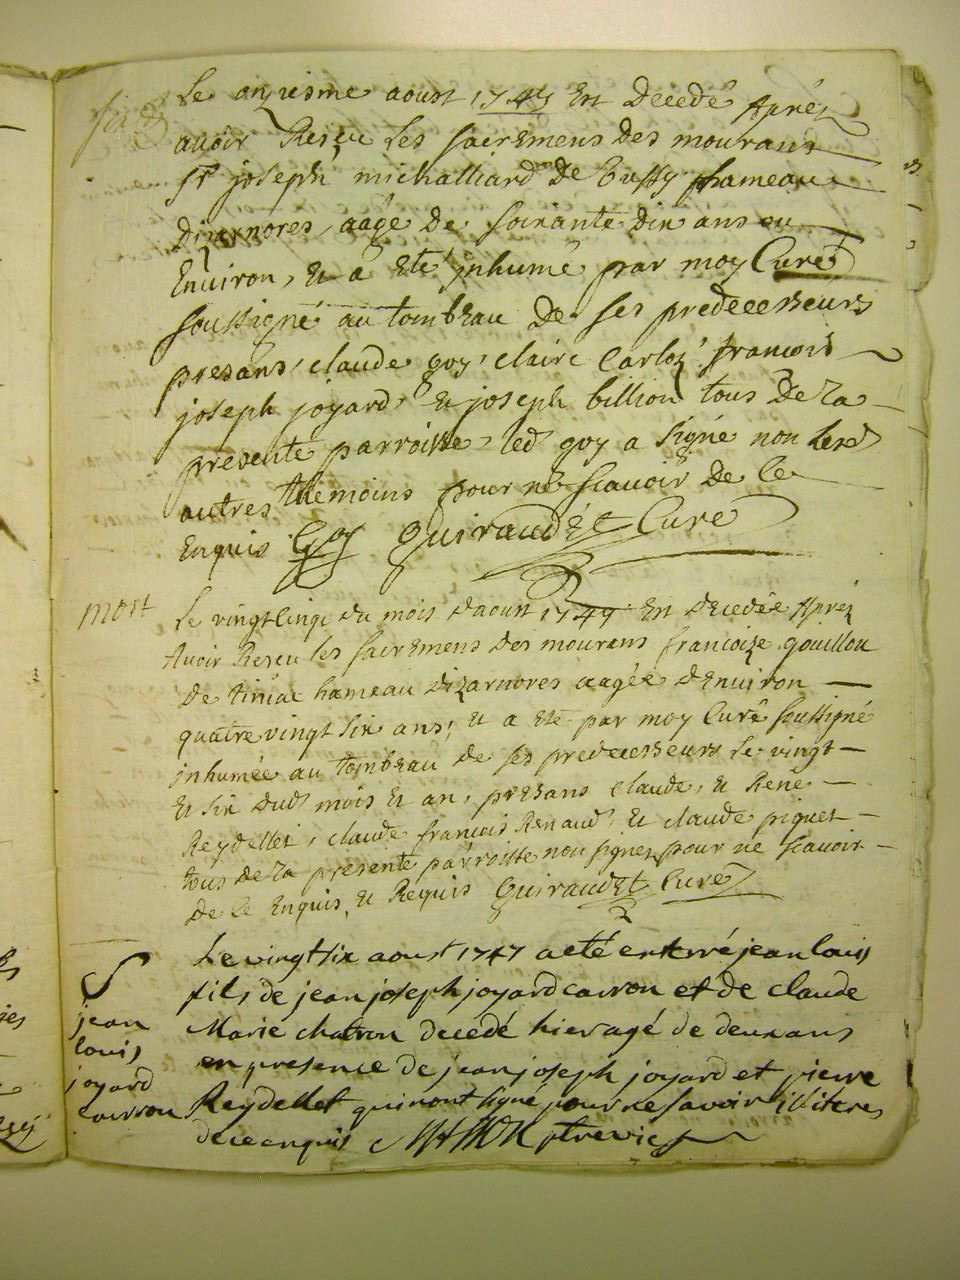 Le onziesme aoust 1747 Est Decedé Aprés
avoir Resçeu Les sacremens des mourans
Sr joseph michalliard De bussy hameau
Dizernores, aáge De soixante dix ans ou
Environ, Et a Eté jnhumé par moy Curé
soussigné au tombeau De ses predecesseurs
presans, claude goy, claire Carloz, francois
joseph joyard, Et joseph billion tous De La
presente parroisse, led goy a signé non Lesd
autres themoins pour ne scavoir De ce
Enquis Goy Guiraudet Curé
mort
Le vingtcinq du mois daoust 1747 Est decedée Aprés
Avoir Resçeu les sacremens des mourans francoize gouillou
De tiniac hameau dizarnores aagée dEnviron
quatre vingt six ans, Et a Eté par moy Curé soussigné
jnhumée au tombeau de ses predecesseurs Le vingt
Et six dud mois Et an, presans claude, Et René
Reydellet, claude francois Renaud, Et claude piquet
tous de La presente parroisse non signez pour ne scavoir
De ce Enquis, Et Requis Guiraudet Curé
S
jean
louis
joyard
carron
Le vingt six aoust 1747 a eté enterré jean louis
fils de jean joseph joyard carron et de claude
Marie chatron decedé hier agé de deux ans
en presence de jean joseph joyard et pierre
Reydellet qui n'ont signé pour ne savoir illiteres
de ce enquis ptre vic